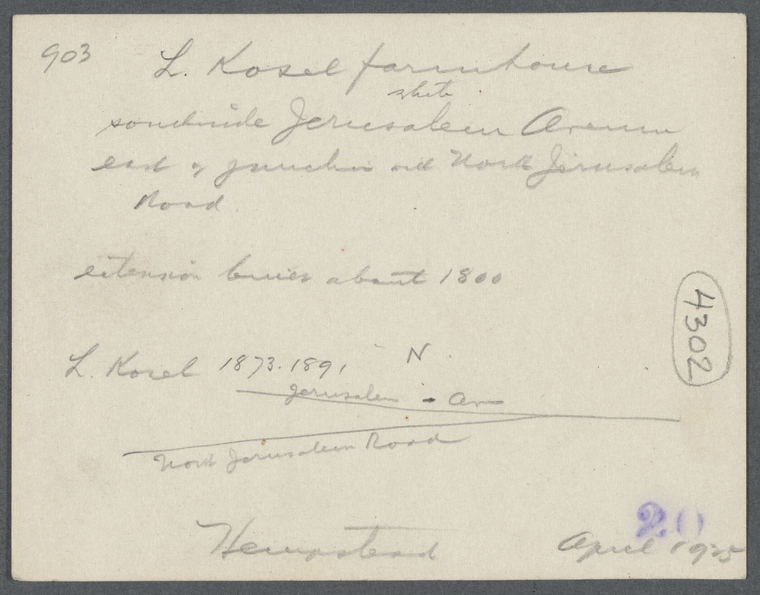 903
L. Kosel farmhouse
white
southside Jerusalem Avenue
east of junction with North Jerusalem
Road
extension built about 1800
4302
L. Kosel 1873-1891 N
Jerusalem Av
North Jerusalem Road
20
Hempstead April 1925